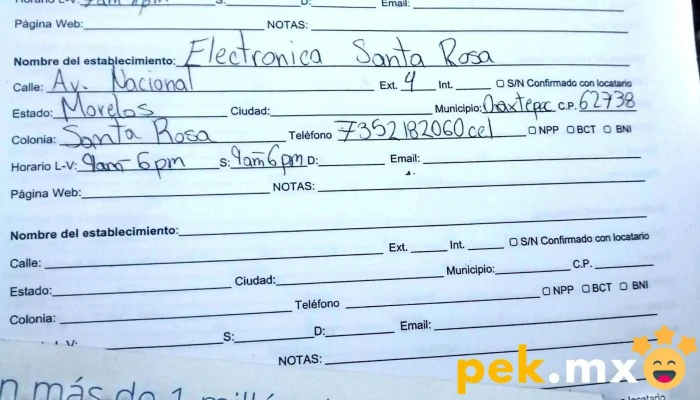 Horario L-V: 9am 6pm S: D: Email:
Página Web: NOTAS:
Nombre del establecimiento: Electronica Santa Rosa
Calle: Av. Nacional Ext. 4 Int. S/N Confirmado con locatario
Estado: Morelos Ciudad: Municipio: Oaxtepec C.P. 62738
Colonia: Santa Rosa Teléfono 7352182060cel NPP BCT BNI
Horario L-V: 9am-6pm S: 9am-6pm D: Email:
Página Web: NOTAS:
Nombre del establecimiento:
Calle: Ext. Int. S/N Confirmado con locatario
Estado: Ciudad: Municipio: C.P.
Colonia: Teléfono NPP BCT BNI
S: D: Email:
NOTAS:
pek.mx
n más de 1